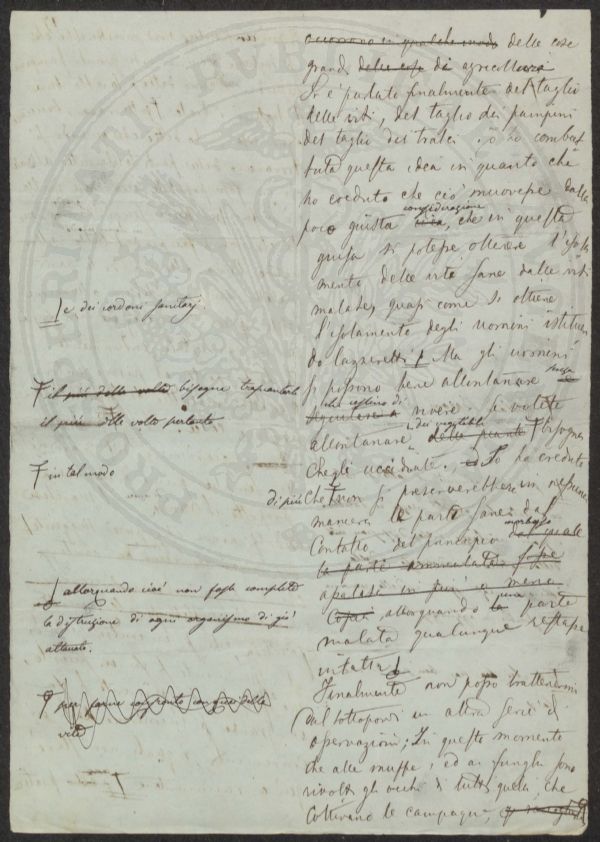 occorrono in qualche modo delle cose
grandi delle cose di agricoltura
Si è parlato finalmente del taglio
delle viti, del taglio dei pampini
del taglio dei tralci. Io ho combat
tuta questa idea in quanto che
ho creduto che ciò muovesse dalla
poco giusta considerazione, che in questa
guisa si potesse ottenere l'isola
mento delle viti sane dalle viti
malate, quasi come si ottiene
l'isolamento degli uomini istituen
do lazzeretti Ma gli uomini
si possono bene allontanare senza
che cessino di vivere. Se volete
allontanare i dei vegetabili delle piante bisogna
che gli uccidiate. Io ho creduto
di più che non si preserverebbero in nessuna
maniera le parti sane dal
contatto del principio morboso del quale
la parte ammalata fosse
apolissi in più o meno
copia allorquando la parte
malata qualunque restasse
intatta
Finalmente non posso trattenermi
dal sottoporvi un altra serie di
osservazioni; In questo momento
che alle muffe, ed ai funghi sono
rivolti gli occhi di tutti quelli che
coltivano le campagne,
e dei cordoni sanitarj.
il più delle volte bisogna trapiantarli
il più delle volte pertanto
in tal modo
allorquando cioè non fosse completa
la distruzione di ogni organismo di già
attaccato.
per farne confronto con quei della
vite